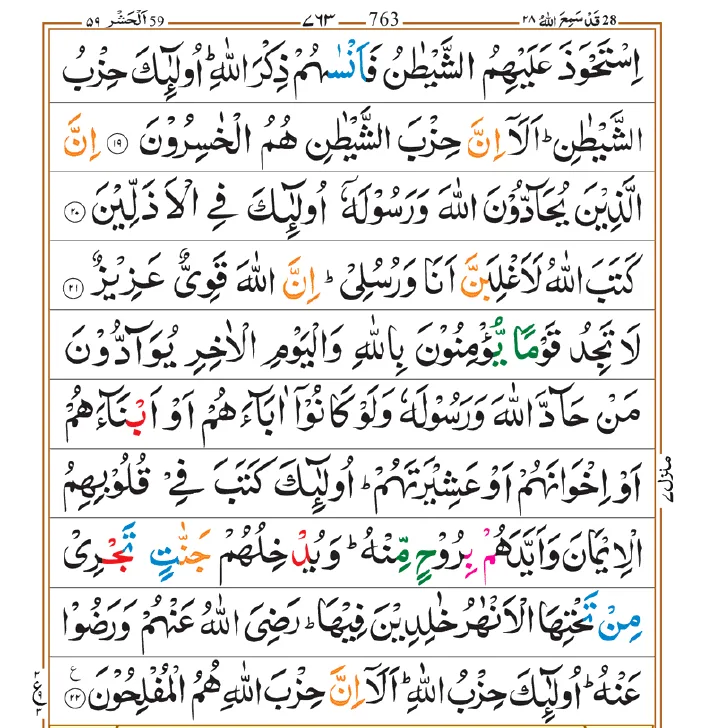 59 اَلْحَشْر ٥٩ ٧٦٣ 763 28 قَدْ سَمِعَ اللّٰهُ ٢٨
اِسْتَحْوَذَ عَلَيْهِمُ الشَّيْطٰنُ فَاَنْسٰىهُمْ ذِكْرَ اللّٰهِ ؕ اُولٰٓئِكَ حِزْبُ
الشَّيْطٰنِ ؕ اَلَاۤ اِنَّ حِزْبَ الشَّيْطٰنِ هُمُ الْخٰسِرُوْنَ ١٩ اِنَّ
الَّذِيْنَ يُحَآدُّوْنَ اللّٰهَ وَرَسُوْلَهٗۤ اُولٰٓئِكَ فِى الْاَذَلِّيْنَ ٢٠
كَتَبَ اللّٰهُ لَاَغْلِبَنَّ اَنَا وَرُسُلِىْ ؕ اِنَّ اللّٰهَ قَوِىٌّ عَزِيْزٌ ٢١
لَا تَجِدُ قَوْمًا يُّؤْمِنُوْنَ بِاللّٰهِ وَالْيَوْمِ الْاٰخِرِ يُوَآدُّوْنَ
مَنْ حَآدَّ اللّٰهَ وَرَسُوْلَهٗ وَلَوْ كَانُوْۤا اٰبَآءَهُمْ اَوْ اَبْنَآءَهُمْ
اَوْ اِخْوَانَهُمْ اَوْ عَشِيْرَتَهُمْ ؕ اُولٰٓئِكَ كَتَبَ فِىْ قُلُوْبِهِمُ
الْاِيْمَانَ وَاَيَّدَهُمْ بِرُوْحٍ مِّنْهُ ؕ وَيُدْخِلُهُمْ جَنّٰتٍ تَجْرِىْ
مِنْ تَحْتِهَا الْاَنْهٰرُ خٰلِدِيْنَ فِيْهَا ؕ رَضِىَ اللّٰهُ عَنْهُمْ وَرَضُوْا
عَنْهُ ؕ اُولٰٓئِكَ حِزْبُ اللّٰهِ ؕ اَلَاۤ اِنَّ حِزْبَ اللّٰهِ هُمُ الْمُفْلِحُوْنَ ٢٢ ع
منزل ٧